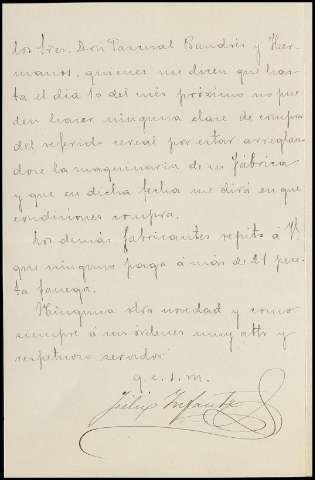 los Sres. Don Pascual Bandrés y Her-
manos, quienes me dicen que has-
ta el dia 10 del mes próximo no pue
den hacer ninguna clase de compra
del referido cereal por estar arreglan
dose la maquinaria de su Fábrica
y que en dicha fecha me dirá en que
condiciones compra.
Los demás fabricantes repito á V.
que ninguno paga á más de 21 pese-
ta fanega.
Ninguna otra novedad y como
siempre á sus órdenes muy atto y
respetuoso servidor
q. e. s. m.
Infante